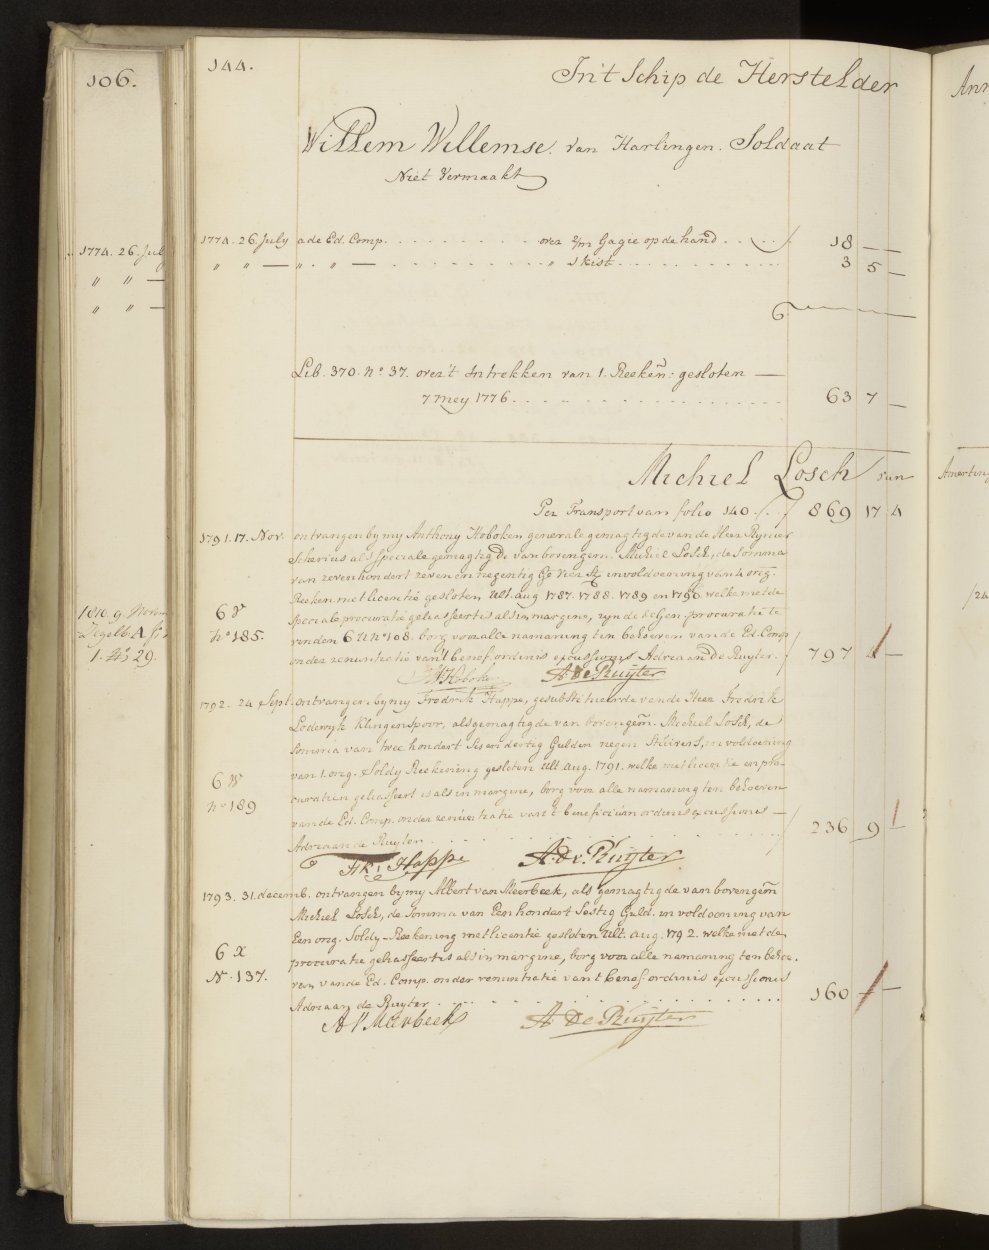 106.
1774. 26. July
" " —
" " —
1810. 9. Novem
Zegelb. A
1. 29.
144.
In't Schip de Herstelder
Willem Willemse. van Harlingen. Soldaat
Niet Vermaakt
1774. 26. July a de Ed. Comp. over 2/m Gagie op de hand 18 — —
" " — " " — " 1 kist 3 5 —
Lib. 370. No. 37. over 't Intrekken van 1. Reeken: gesloten —
7 mey 1776 63 7 —
Michiel Losch / van
Per Transport van folio 140 / 869 17 4
1791. 17. Nov. ontvangen by my Anthony Hoboken generale gemagtigde van de Heer Rynier
Scherius als speciale gemagtigde van bovengem. Michiel Losch, de Somma
van zevenhondert zeven en negentig Ge vier in voldoening van 4 orig.
Reeken met licentie gesloten Ult. aug 1787. 1788. 1789 en 1790. welke met de
6 V speciale procuratie gekasseert is als in margine, zynde de Gen. procuratie te
No. 185. vinden 6 U No. 108. borg voor alle namaning ten behoeven van de Ed. Comp
onder renuntiatie van't benef. ordinis excussionis Adriaan de Ruyter. / 797 4 —
A Hoboken A De Ruyter
1792. 24 Sept. ontvangen by my Fredrik Happe, gesubstitueerde van de Heer Fredrik
Lodewyk Klingenspoor, als gemagtigde van bovengem. Michiel Losch, de
Somma van twee hondert Ses en dertig Gulden negen Stuivers, in voldoening
van 1. orig. Soldy Reekening gesloten Ult. aug. 1791. welke met licentie en pro-
6 W curatien gekasseert is als in margine, borg voor alle namaning ten behoeven
No 189 van de Ed. Comp. onder renuntiatie van 't beneficium ordinis excussionis —
Adriaan de Ruyter / 236 9 —
Frk: Happe A. De Ruijter
1793. 31. decemb. ontvangen by my Albert van Meerbeek, als gemagtigde van bovengem
Michiel Losch, de Somma van Een hondert Sestig Guld. in voldoening van
Een orig. Soldy-Reekening met licentie gesloten Ult. aug. 1792. welke met de
6 X procuratie gekasseert is als in margine, borg voor alle namaning ten behoe-
N. 137. ven van de Ed. Comp. onder renuntiatie van 't benef ordinis excussionis
Adriaan de Ruyter 160 — —
A V Meerbeek A. De Ruijter